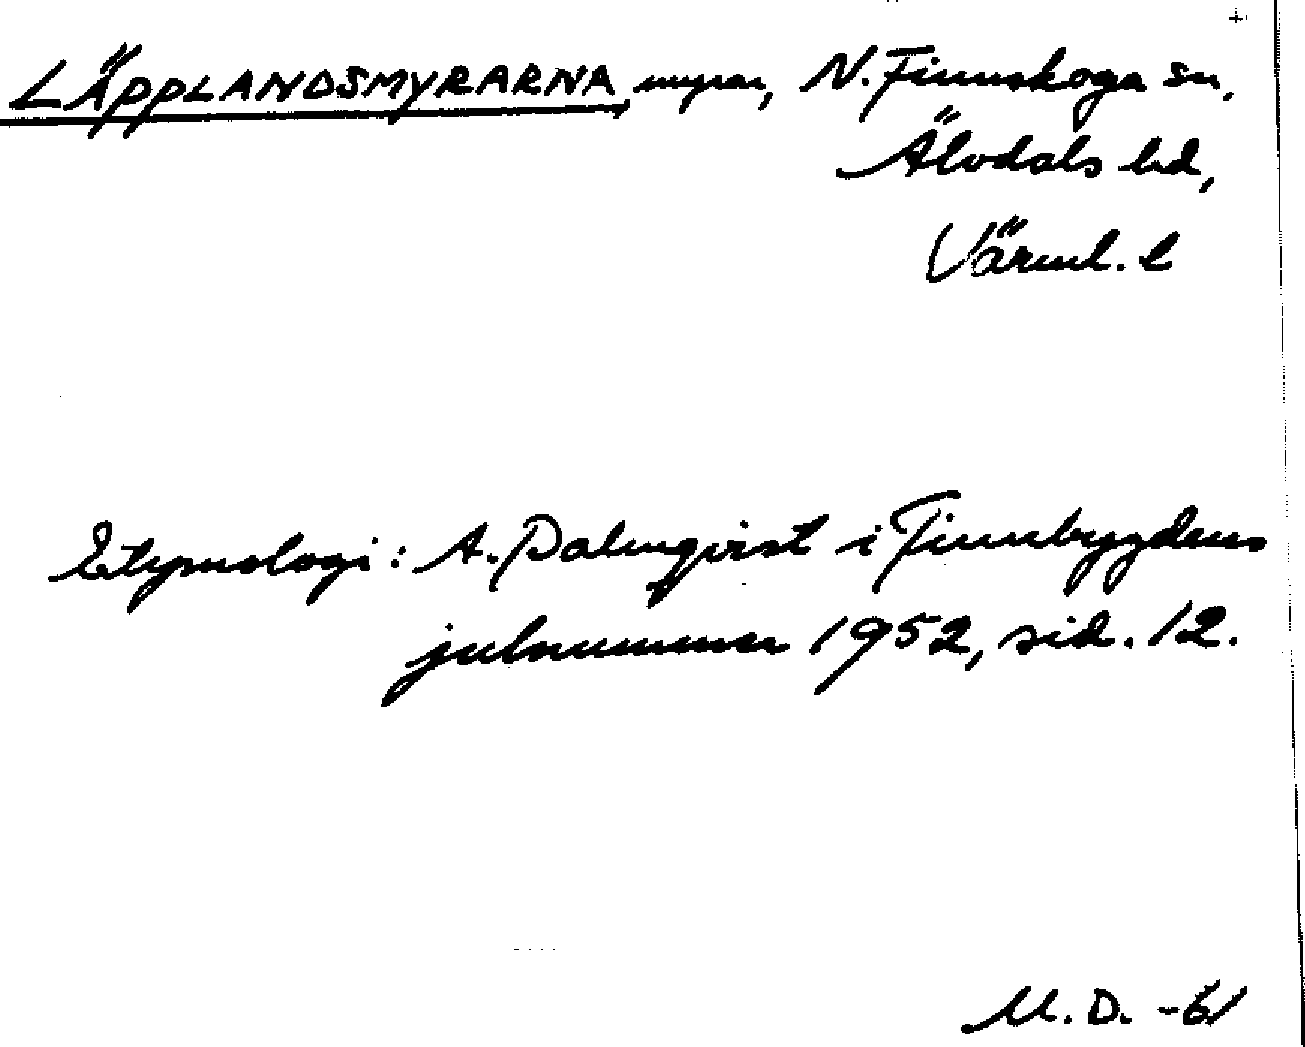 LÄPPLANDSMYRARNA, myrar, N. Finnskoga sn,
Älvdals hd,
Värml. l
Etymologi: A. Palmqvist i Finnbygdens
julnummer 1952, sid. 12.
M. D. -61